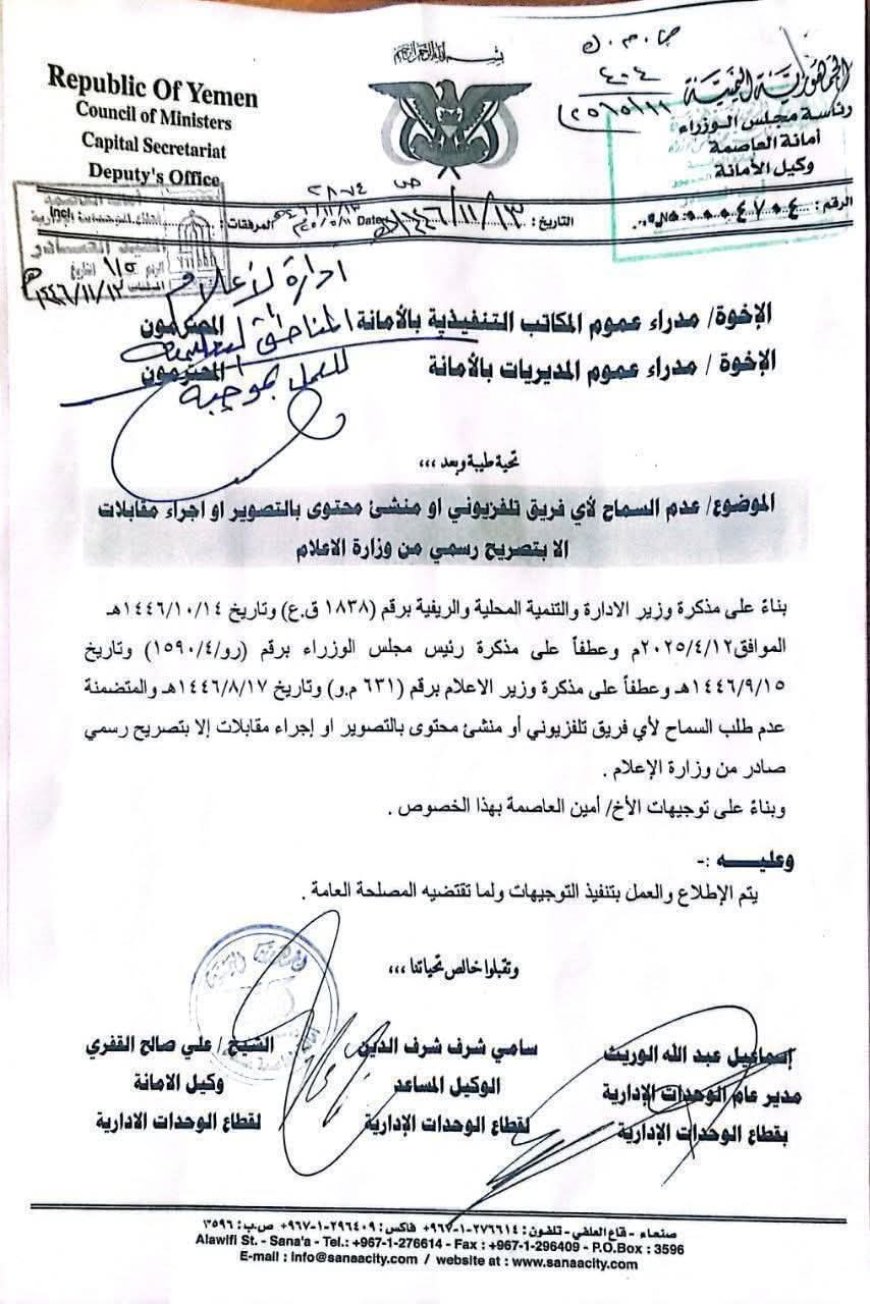 بسم الله الرحمن الرحيم
Republic Of Yemen
Council of Ministers
Capital Secretariat
Deputy's Office
الجمهورية اليمنية
رئاسة مجلس الوزراء
أمانة العاصمة
وكيل الأمانة
ص.م.ك
٤٠٤
الرقم : ٤٧٠٤
التاريخ : ١٤٤٦/١١/١٣هـ
Date
المرفقات :
١٤٤٦/١١/١٢هـ
ادارة الإعلام
المناطق التعليمية
للعمل بموجبه
الإخوة/ مدراء عموم المكاتب التنفيذية بالأمانة المحترمون
الإخوة / مدراء عموم المديريات بالأمانة المحترمون
تحية طيبة وبعد ،،،
الموضوع/ عدم السماح لأي فريق تلفزيوني او منشئ محتوى بالتصوير او اجراء مقابلات
الا بتصريح رسمي من وزارة الاعلام
بناءً على مذكرة وزير الادارة والتنمية المحلية والريفية برقم (١٨٣٨ ق.ع) وتاريخ ١٤٤٦/١٠/١٤هـ
الموافق٢٠٢٥/٤/١٢م وعطفاً على مذكرة رئيس مجلس الوزراء برقم (رو/١٥٩٠/٤) وتاريخ
١٤٤٦/٩/١٥هـ وعطفاً على مذكرة وزير الاعلام برقم (٦٣١ م.و) وتاريخ ١٤٤٦/٨/١٧هـ والمتضمنة
عدم طلب السماح لأي فريق تلفزيوني أو منشئ محتوى بالتصوير او إجراء مقابلات إلا بتصريح رسمي
صادر من وزارة الإعلام .
وبناءً على توجيهات الأخ/ أمين العاصمة بهذا الخصوص .
وعليـــــه :-
يتم الإطلاع والعمل بتنفيذ التوجيهات ولما تقتضيه المصلحة العامة .
وتقبلوا خالص تحياتنا ،،،
إسماعيل عبد الله الوريث
مدير عام الوحدات الإدارية
بقطاع الوحدات الإدارية
سامي شرف شرف الدين
الوكيل المساعد
لقطاع الوحدات الإدارية
الشيخ / علي صالح القفري
وكيل الامانة
لقطاع الوحدات الادارية
صنعاء - قاع العلفي - تلفون : ٢٧٦٦١٤-١-٩٦٧+ فاكس : ٢٩٦٤٠٩-١-٩٦٧+ ص.ب : ٣٥٩٦
Alawifi St. - Sana'a - Tel.: +967-1-276614 - Fax : +967-1-296409 - P.O.Box : 3596
E-mail : info@sanaacity.com / website at : www.sanaacity.com